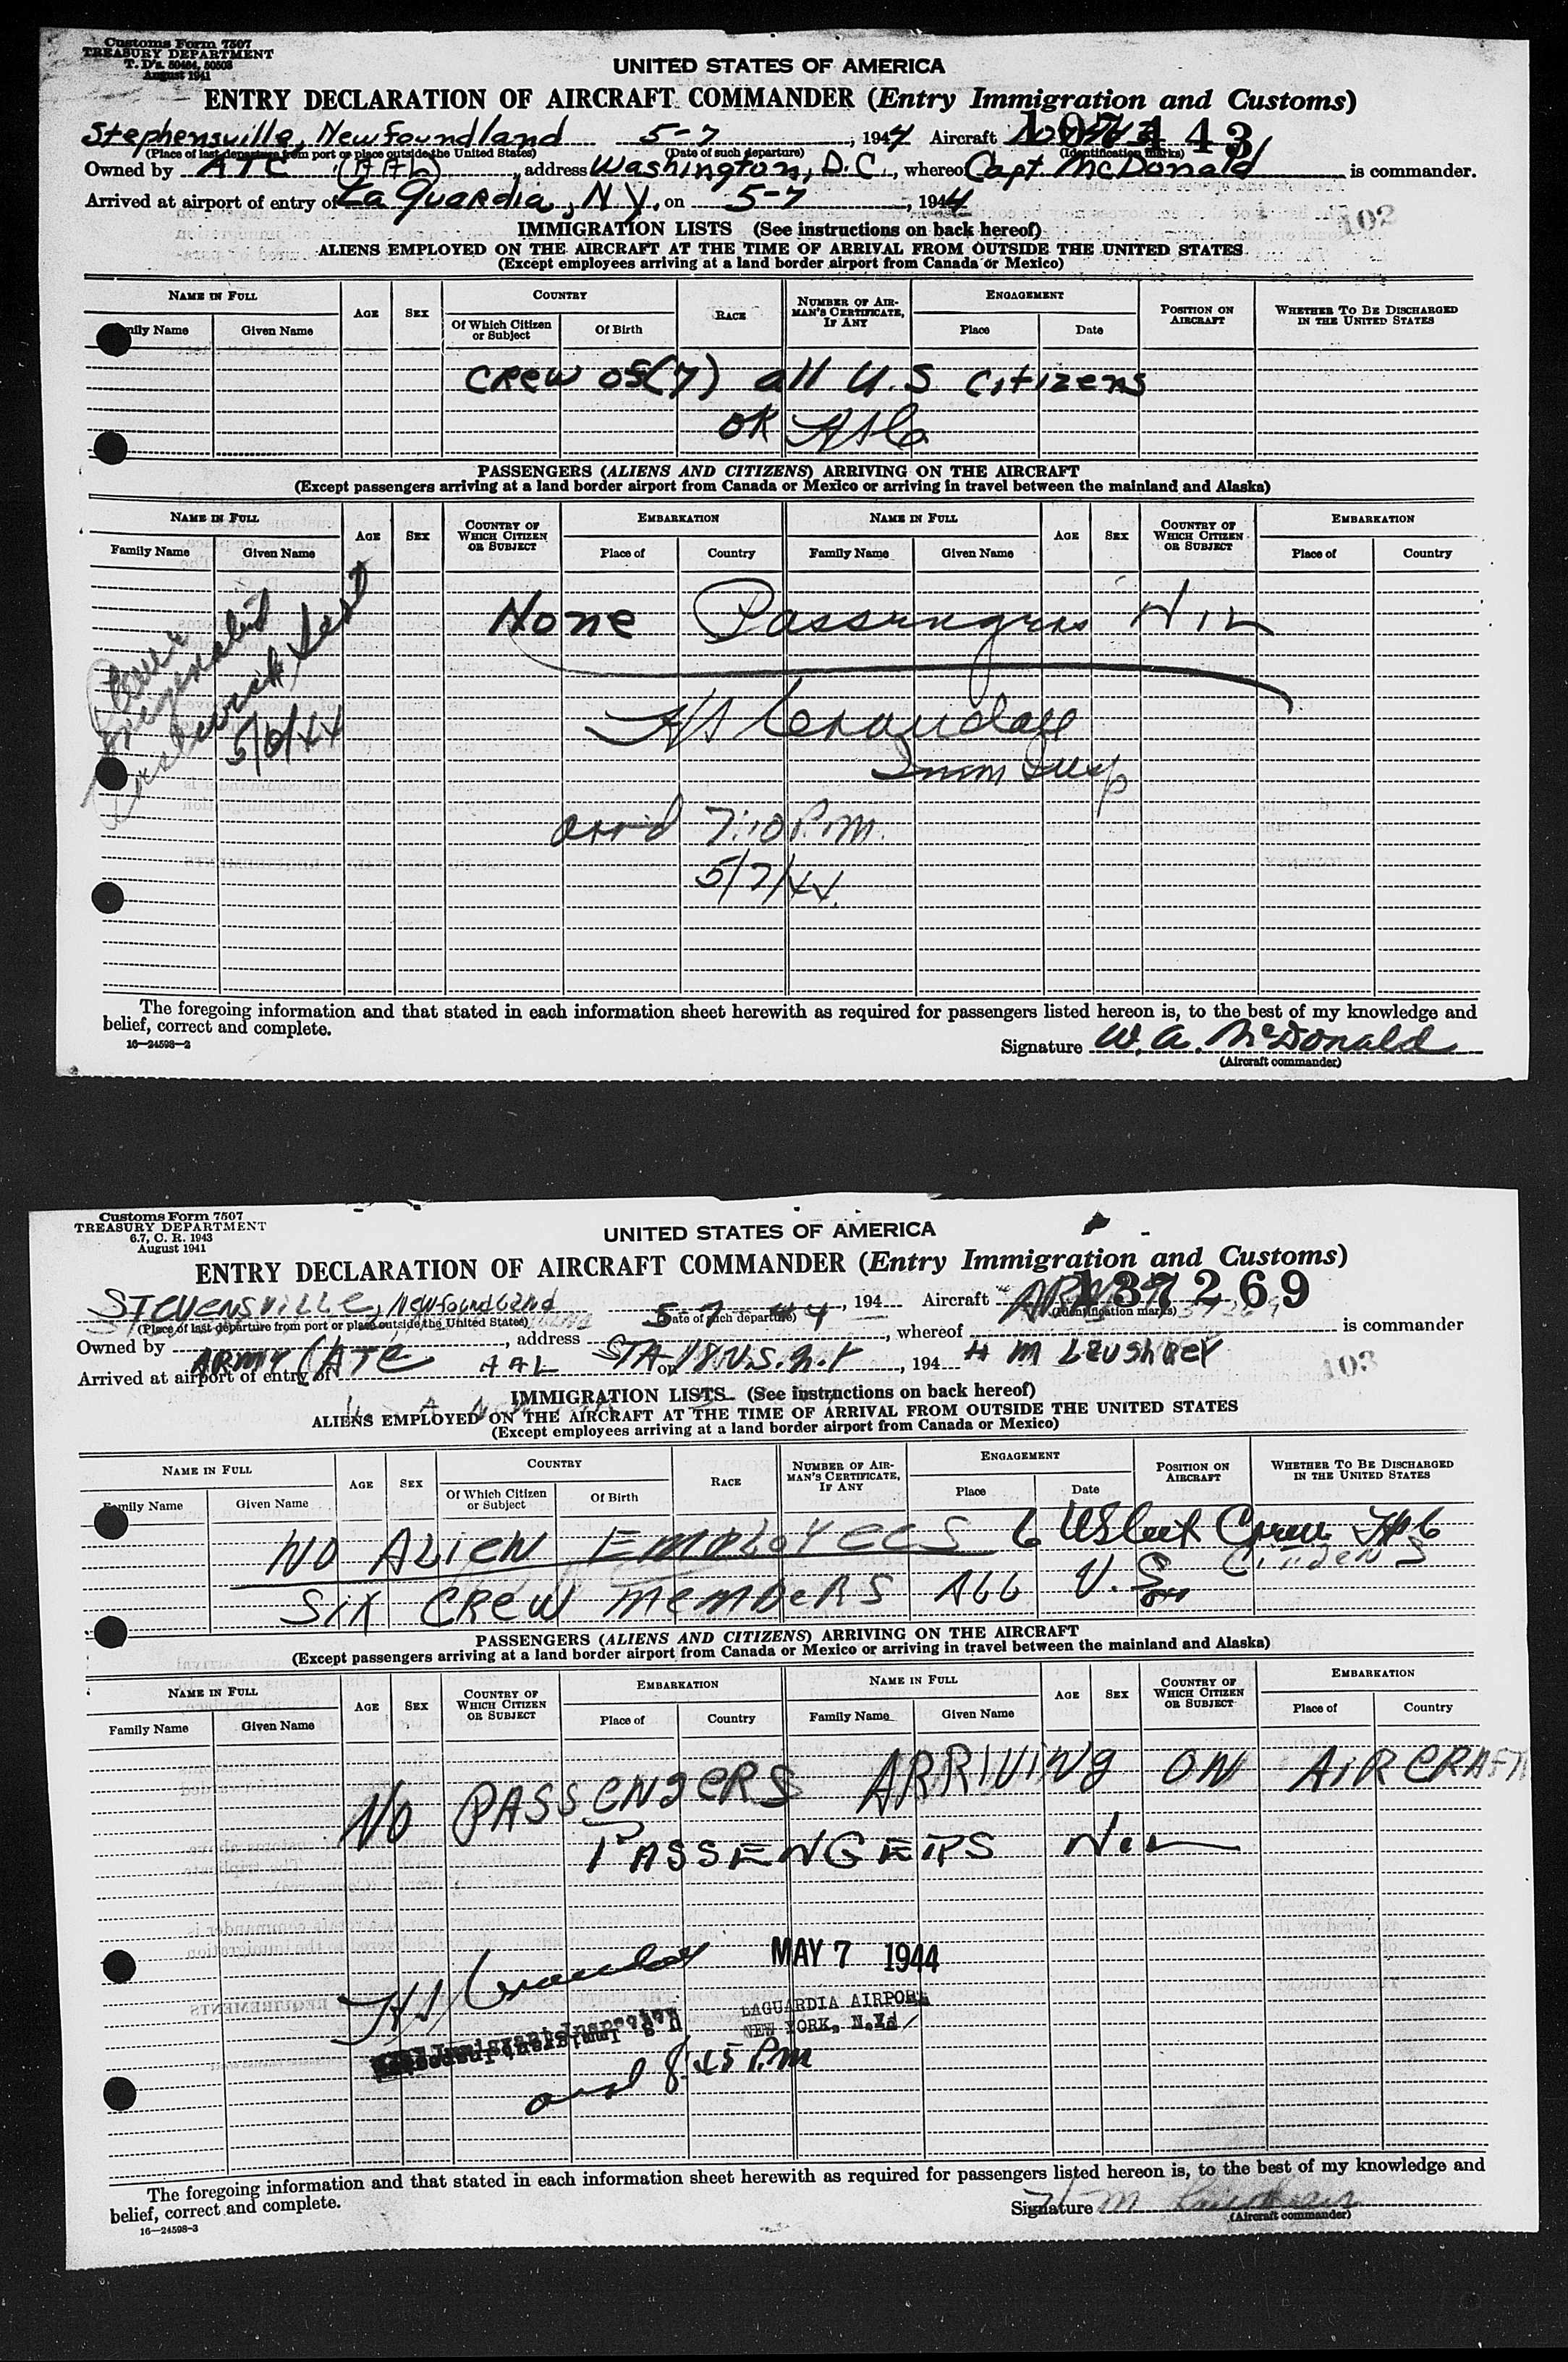 Customs Form 7507
TREASURY DEPARTMENT
T. D's. 50484, 50503
August 1941
UNITED STATES OF AMERICA
ENTRY DECLARATION OF AIRCRAFT COMMANDER (Entry Immigration and Customs)
Stephensville, Newfoundland 5-7, 1944 Aircraft 107443
(Place of last departure from port or place outside the United States) (Date of such departure) (Identification marks)
Owned by ATC (AAL), address Washington, D.C., whereof Capt. McDonald is commander.
Arrived at airport of entry of La Guardia, N.Y., on 5-7, 1944
102
IMMIGRATION LISTS (See instructions on back hereof)
ALIENS EMPLOYED ON THE AIRCRAFT AT THE TIME OF ARRIVAL FROM OUTSIDE THE UNITED STATES
(Except employees arriving at a land border airport from Canada or Mexico)
NAME IN FULL AGE SEX COUNTRY RACE NUMBER OF AIRMAN'S CERTIFICATE, IF ANY ENGAGEMENT POSITION ON AIRCRAFT WHETHER TO BE DISCHARGED IN THE UNITED STATES
Family Name Given Name Of Which Citizen or Subject Of Birth Place Date
Crew of (7) all U.S Citizens
OK
PASSENGERS (ALIENS AND CITIZENS) ARRIVING ON THE AIRCRAFT
(Except passengers arriving at a land border airport from Canada or Mexico or arriving in travel between the mainland and Alaska)
NAME IN FULL AGE SEX COUNTRY OF WHICH CITIZEN OR SUBJECT EMBARKATION NAME IN FULL AGE SEX COUNTRY OF WHICH CITIZEN OR SUBJECT EMBARKATION
Family Name Given Name Place of Country Family Name Given Name Place of Country
None Passengers NIL
5/6/44
Imm Insp
arr'd 7:10 P.m.
5/7/44.
The foregoing information and that stated in each information sheet herewith as required for passengers listed hereon is, to the best of my knowledge and
belief, correct and complete.
16—24598-2
Signature W. A. McDonald
(Aircraft commander)
Customs Form 7507
TREASURY DEPARTMENT
6.7, C. R. 1943
August 1941
UNITED STATES OF AMERICA
ENTRY DECLARATION OF AIRCRAFT COMMANDER (Entry Immigration and Customs)
STEVENSVILLE, Newfoundland 5 7 44, 194 Aircraft ARMY 137269
(Place of last departure from port or place outside the United States) (Date of such departure) (Identification marks)
Owned by, address, whereof is commander
ARMY (ATC AAL STA 18
Arrived at airport of entry of on, 194
103
IMMIGRATION LISTS (See instructions on back hereof)
ALIENS EMPLOYED ON THE AIRCRAFT AT THE TIME OF ARRIVAL FROM OUTSIDE THE UNITED STATES
(Except employees arriving at a land border airport from Canada or Mexico)
NAME IN FULL AGE SEX COUNTRY RACE NUMBER OF AIRMAN'S CERTIFICATE, IF ANY ENGAGEMENT POSITION ON AIRCRAFT WHETHER TO BE DISCHARGED IN THE UNITED STATES
Family Name Given Name Of Which Citizen or Subject Of Birth Place Date
NO ALIEN EMPLOYEES
SIX CREW MEMBERS ALL U.S. Citizens
PASSENGERS (ALIENS AND CITIZENS) ARRIVING ON THE AIRCRAFT
(Except passengers arriving at a land border airport from Canada or Mexico or arriving in travel between the mainland and Alaska)
NAME IN FULL AGE SEX COUNTRY OF WHICH CITIZEN OR SUBJECT EMBARKATION NAME IN FULL AGE SEX COUNTRY OF WHICH CITIZEN OR SUBJECT EMBARKATION
Family Name Given Name Place of Country Family Name Given Name Place of Country
NO PASSENGERS ARRIVING ON AIRCRAFT
PASSENGERS NIL
MAY 7 1944
LAGUARDIA AIRPORT
NEW YORK, N.Y.
U S Immigrant Inspector
arrd 8:45 P.m
The foregoing information and that stated in each information sheet herewith as required for passengers listed hereon is, to the best of my knowledge and
belief, correct and complete.
16—24598-3
Signature
(Aircraft commander)